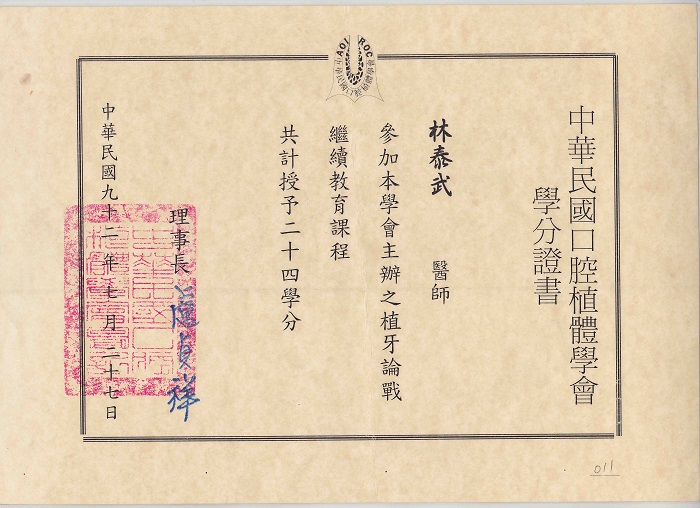 AOI ROC
中華民國口腔植體學會
中華民國口腔植體學會
學分證書
林泰武 醫師
參加本學會主辦之植牙論戰
繼續教育課程
共計授予二十四學分
理事長
中華民國九十二年七月二十七日
011